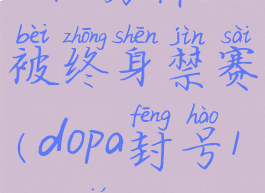 bèi zhōng shēn jìn sài
被终身禁赛
fēng hào
(dopa封号/